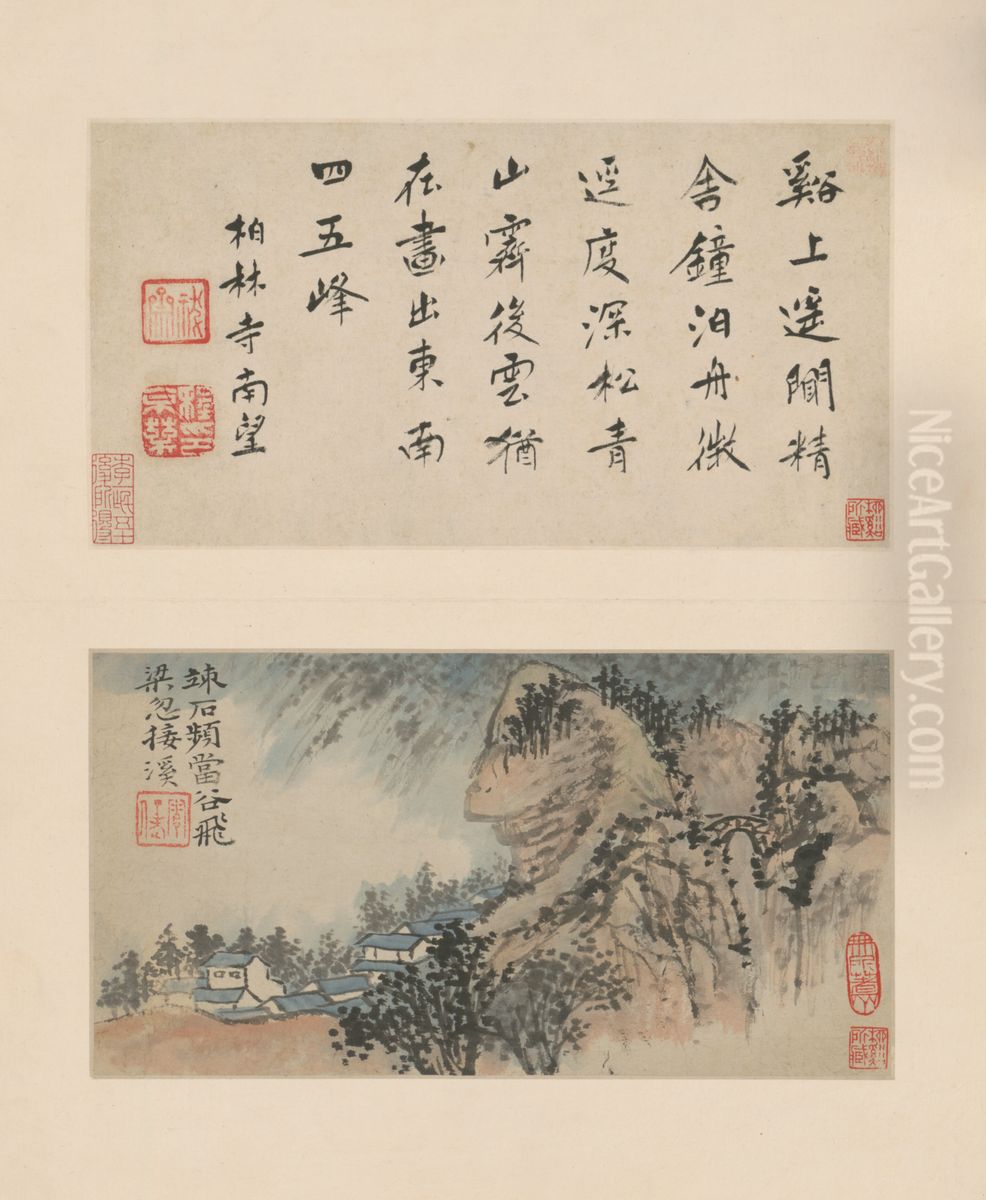 谿上遥聞精
舍鐘泊舟微
逕度深松青
山霽後雲猶
在畫出東南
四五峰
柏林寺南望
竦石頻當谷飛
梁忽接溪
NiceArtGallery.com